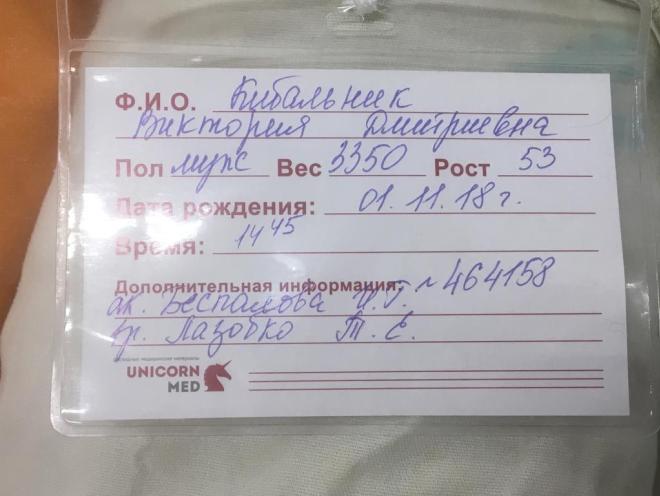 Ф.И.О. Кибальник
Виктория Дмитриевна
Пол муж Вес 3350 Рост 53
Дата рождения: 01.11.18 г.
Время: 14 45
Дополнительная информация: № 464158
ак. Беспалова И.Г.
вр. Лазобко Т. Е.
UNICORN
MED